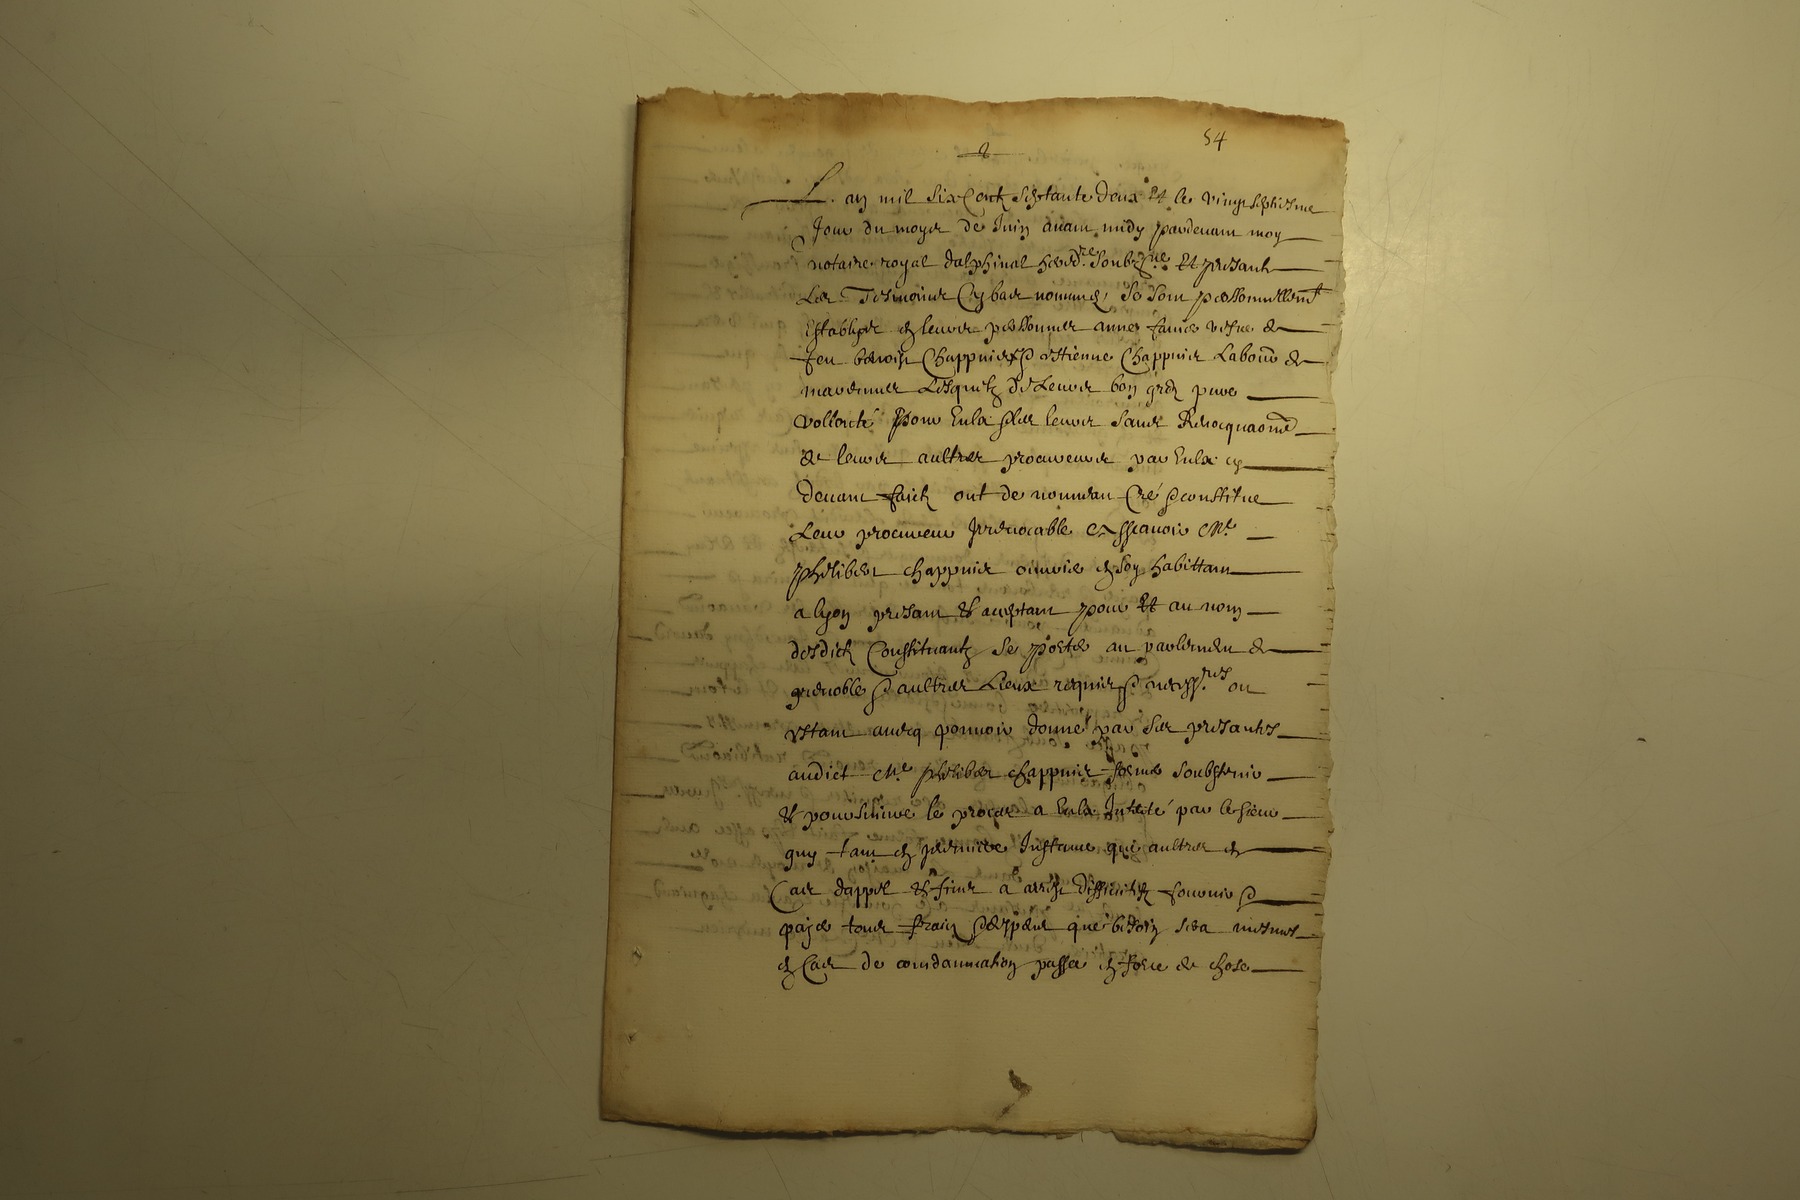 54
L'an mil six Centz septante deux Et le vingtseptiesme
Jour du moys de Juin auant midy pardeuant moy
notaire royal dalphinal hered.re soubz.né Et presantz
Les Tesmoins Cy bas nommés se sont personnellem.t
Establys en leurs personnes anne vefue de
feu benoist Chappuis & estienne Chappuis Labour de
Lesquelz de Leurs bon gré pure
vollonté pour Eulx & les leurs sans Reuocquaon
de leurs aultres procureurs par Eulx cy
deuant faictz ont de nouueau Cré & constitue
Leur procureur Jrreuocable Assçauoir M.e
philibert chappuis ouurier en soy habittant
a lyon presant & acceptant pour Et au nom
desdictz Constituantz se porter au parlement de
grenoble & aultres Lieux requis & necess.res ou
estant auecq pouuoir donné par ses presantes
audict M.e philibert chappuis soubstenir
& poursuiure le proces a Eulx Intenté par le sieur
guy tant en premiere Instance que aultres en
Cas dappel & fins a diffinitifz fournir &
payer tous fraiz & despens que besoin sera mesmes
en Cas de condannation passer en force de chose